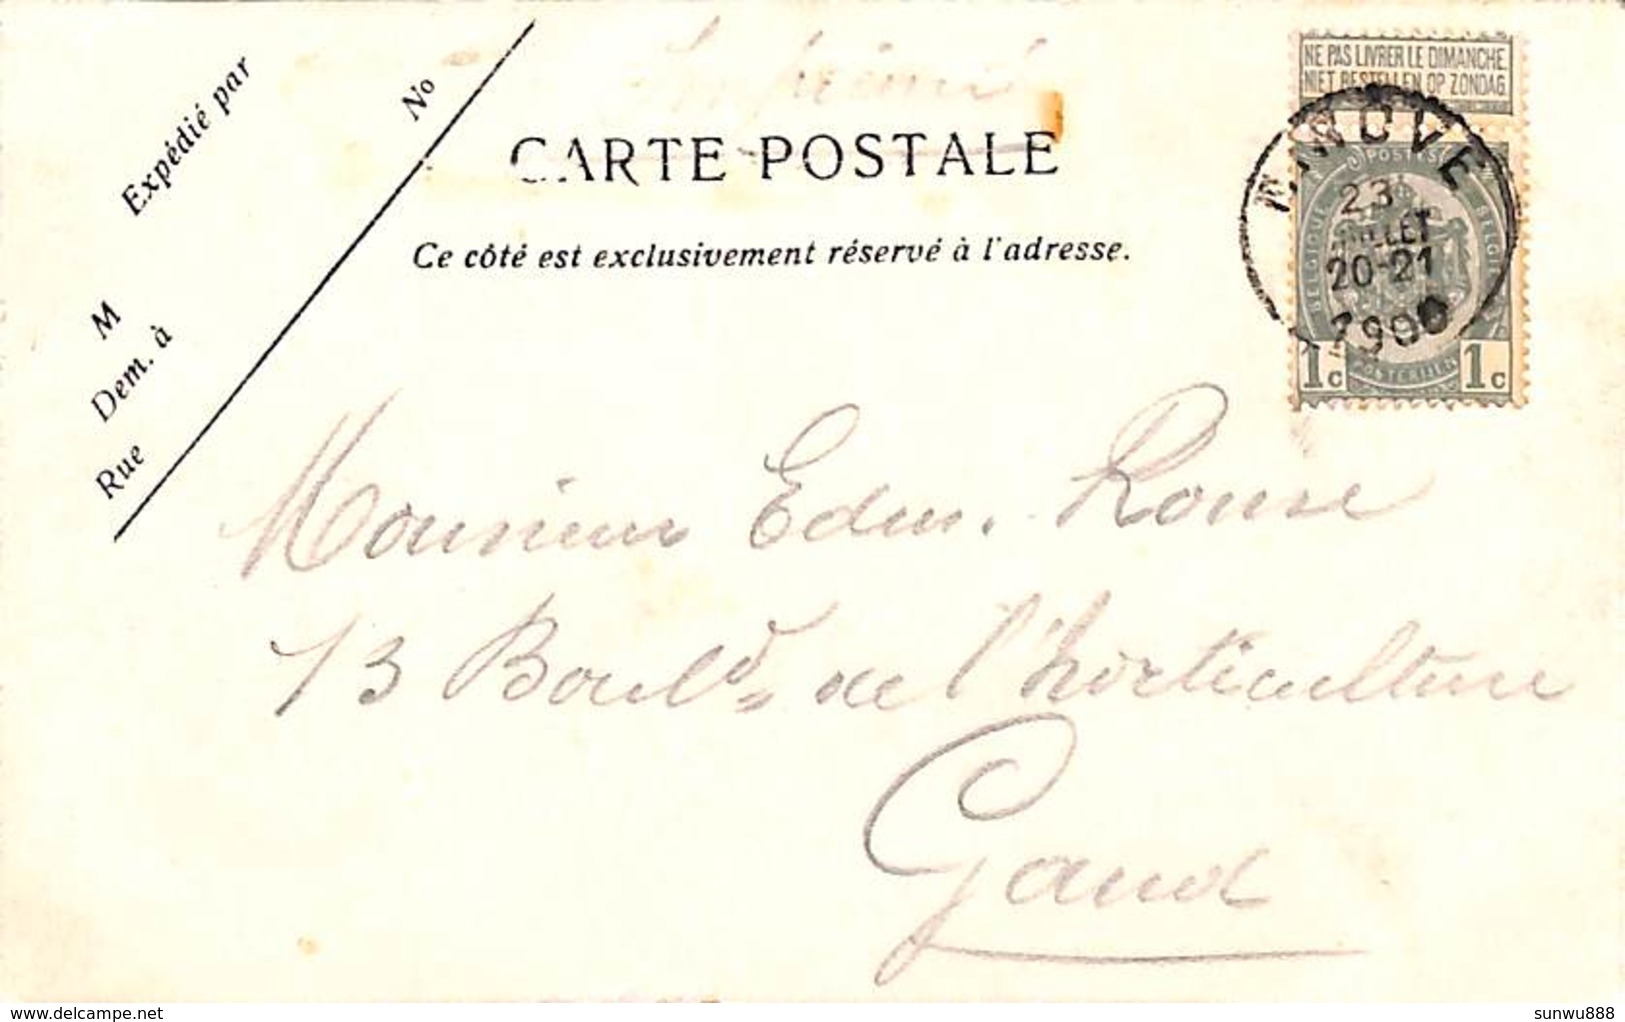 Imprimé
Expédié par
No
CARTE POSTALE
Ce côté est exclusivement réservé à l'adresse.
M
Dem. à
Rue
NE PAS LIVRER LE DIMANCHE.
NIET BESTELLEN OP ZONDAG.
NINOVE
23
JUILLET
20-21
POSTES
BELGIQUE
BELGIË
POSTERIJEN
1c 1c
Monsieur Edm. Ronse
13 Bould. de l'horticulture
Gand
delcampe.net
sunwu888